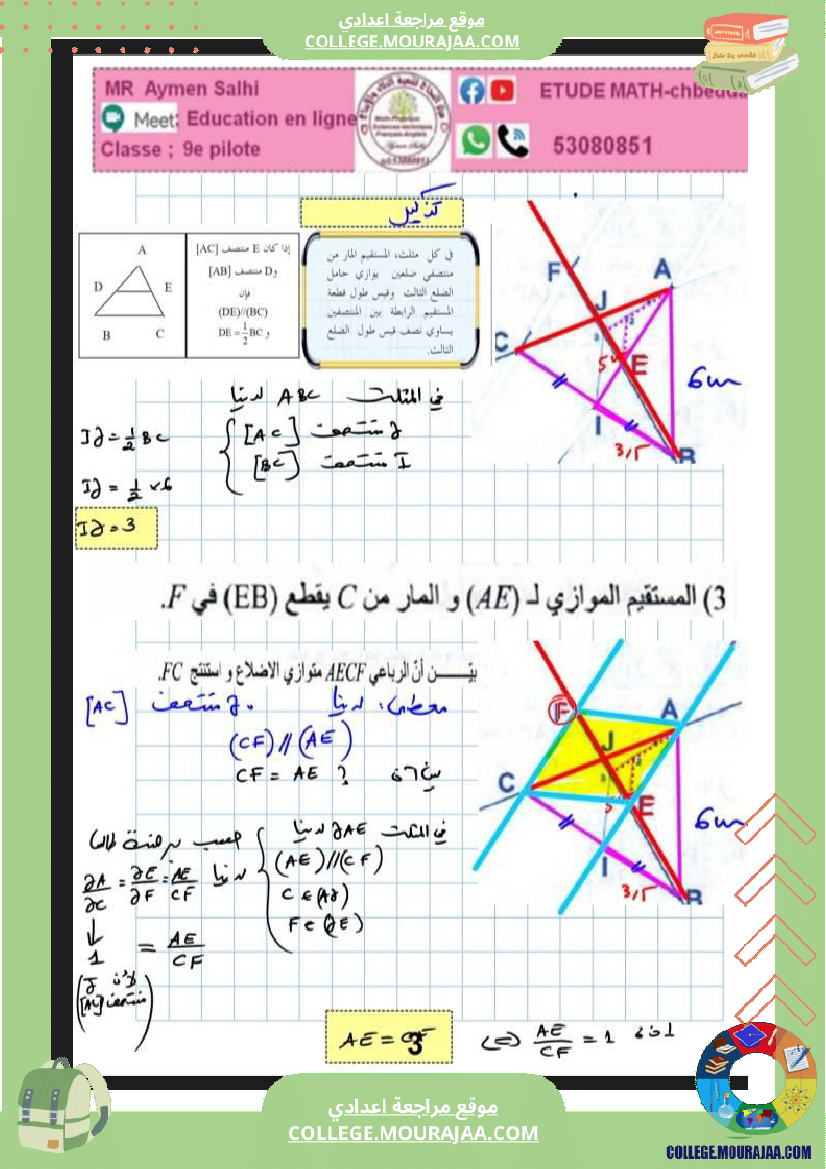 موقع مراجعة اعدادي
COLLEGE.MOURAJAA.COM
MR Aymen Salhi
Meet: Education en ligne
Classe ; 9e pilote
ETUDE MATH-chbedda
53080851
تذكير
A
D E
B C
إذا كان E منتصف [AC]
و D منتصف [AB]
فإن
(DE)//(BC)
و DE = 1/2 BC
في كل مثلث، المستقيم المار من
منتصفي ضلعين يوازي حامل
الضلع الثالث وقيس طول قطعة
المستقيم الرابطة بين المنتصفين
يساوي نصف قيس طول الضلع
الثالث.
F
J
A
C
5
E
6cm
I
3,5
B
في المثلث ABC لدينا
J منتصف [AC]
I منتصف [BC]
IJ = 1/2 BC
IJ = 1/2 × 6
IJ = 3
3) المستقيم الموازي لـ (AE) و المار من C يقطع (EB) في F.
بيّـــــن أنّ الرباعي AECF متوازي الاضلاع و استنتج FC.
معطى: لدينا J منتصف [AC]
(CF) // (AE)
CF = AE ?
F
A
J
C
E
6cm
I
3,5
B
في المثلث JAE لدينا
(AE)//(CF)
C ∈ (AJ)
F ∈ (JE)
حسب مبرهنة طالس
لدينا JA/JC = JE/JF = AE/CF
↓
1 = AE/CF
(لأن J
منتصف [AC])
إذن AE/CF = 1 (=)
AE = CF
3
موقع مراجعة اعدادي
COLLEGE.MOURAJAA.COM
COLLEGE.MOURAJAA.COM